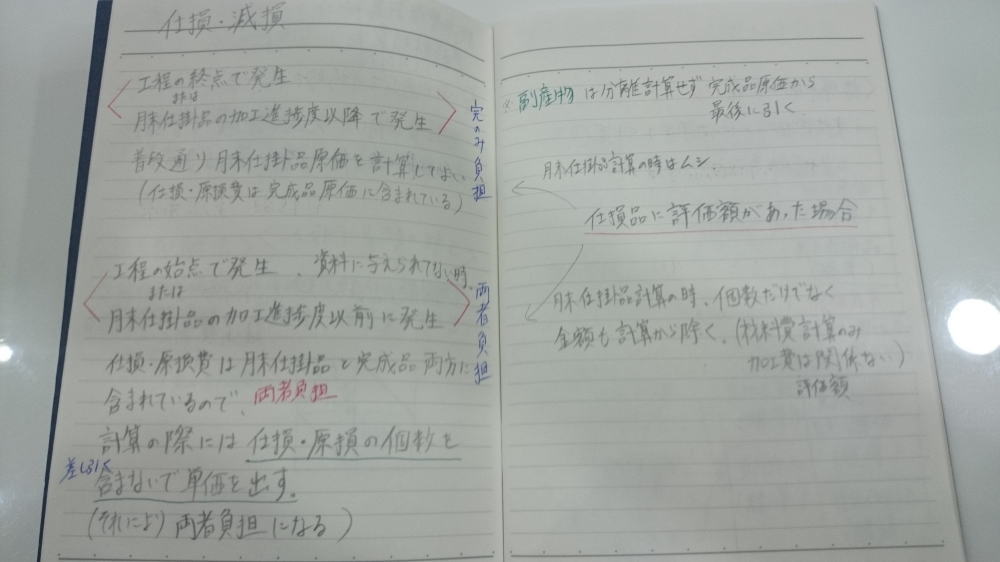 仕損・減損
工程の終点で発生
または
月末仕掛品の加工進捗度以降で発生
完のみ負担
普段通り月末仕掛品原価を計算してよい
(仕損・原損費は完成品原価に含まれている)
工程の始点で発生、資料に与えられてない時、
または
月末仕掛品の加工進捗度以前に発生
両者負担
仕損・原損費は月末仕掛品と完成品両方に
含まれているので、両者負担
計算の際には仕損・原損の個数を
差し引く
含まないで単価を出す。
(それにより両者負担になる)
※副産物は分離計算せず完成品原価から
最後に引く
月末仕掛品計算の時はムシ
仕損品に評価額があった場合
月末仕掛品計算の時、個数だけでなく
金額も計算から除く。(材料費計算のみ
加工費は関係ない)
評価額